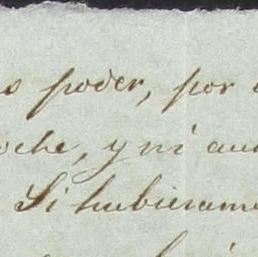 poder, por
oche, y ni aun
Si hubieram